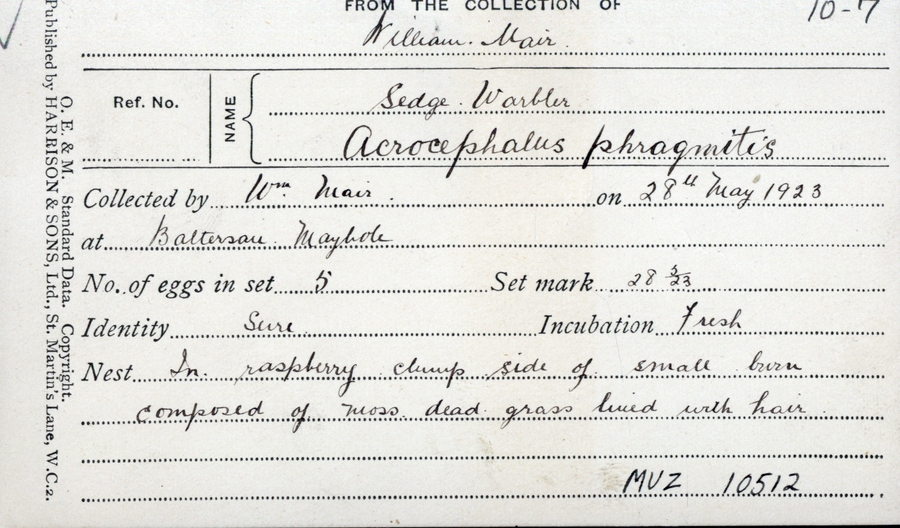 FROM THE COLLECTION OF
10-7
William. Mair.
Ref. No.
NAME
Sedge Warbler
Acrocephalus phragmitis
Collected by Wm Mair. on 28th May 1923
at Baltersan Maybole
No. of eggs in set 5 Set mark 28 5/23
Identity Sure Incubation Fresh
Nest In raspberry clump side of small burn
composed of moss dead grass lined with hair
MUZ 10512
O. E. & M. Standard Data. Copyright.
Published by HARRISON & SONS, Ltd., St. Martin's Lane, W.C.2.